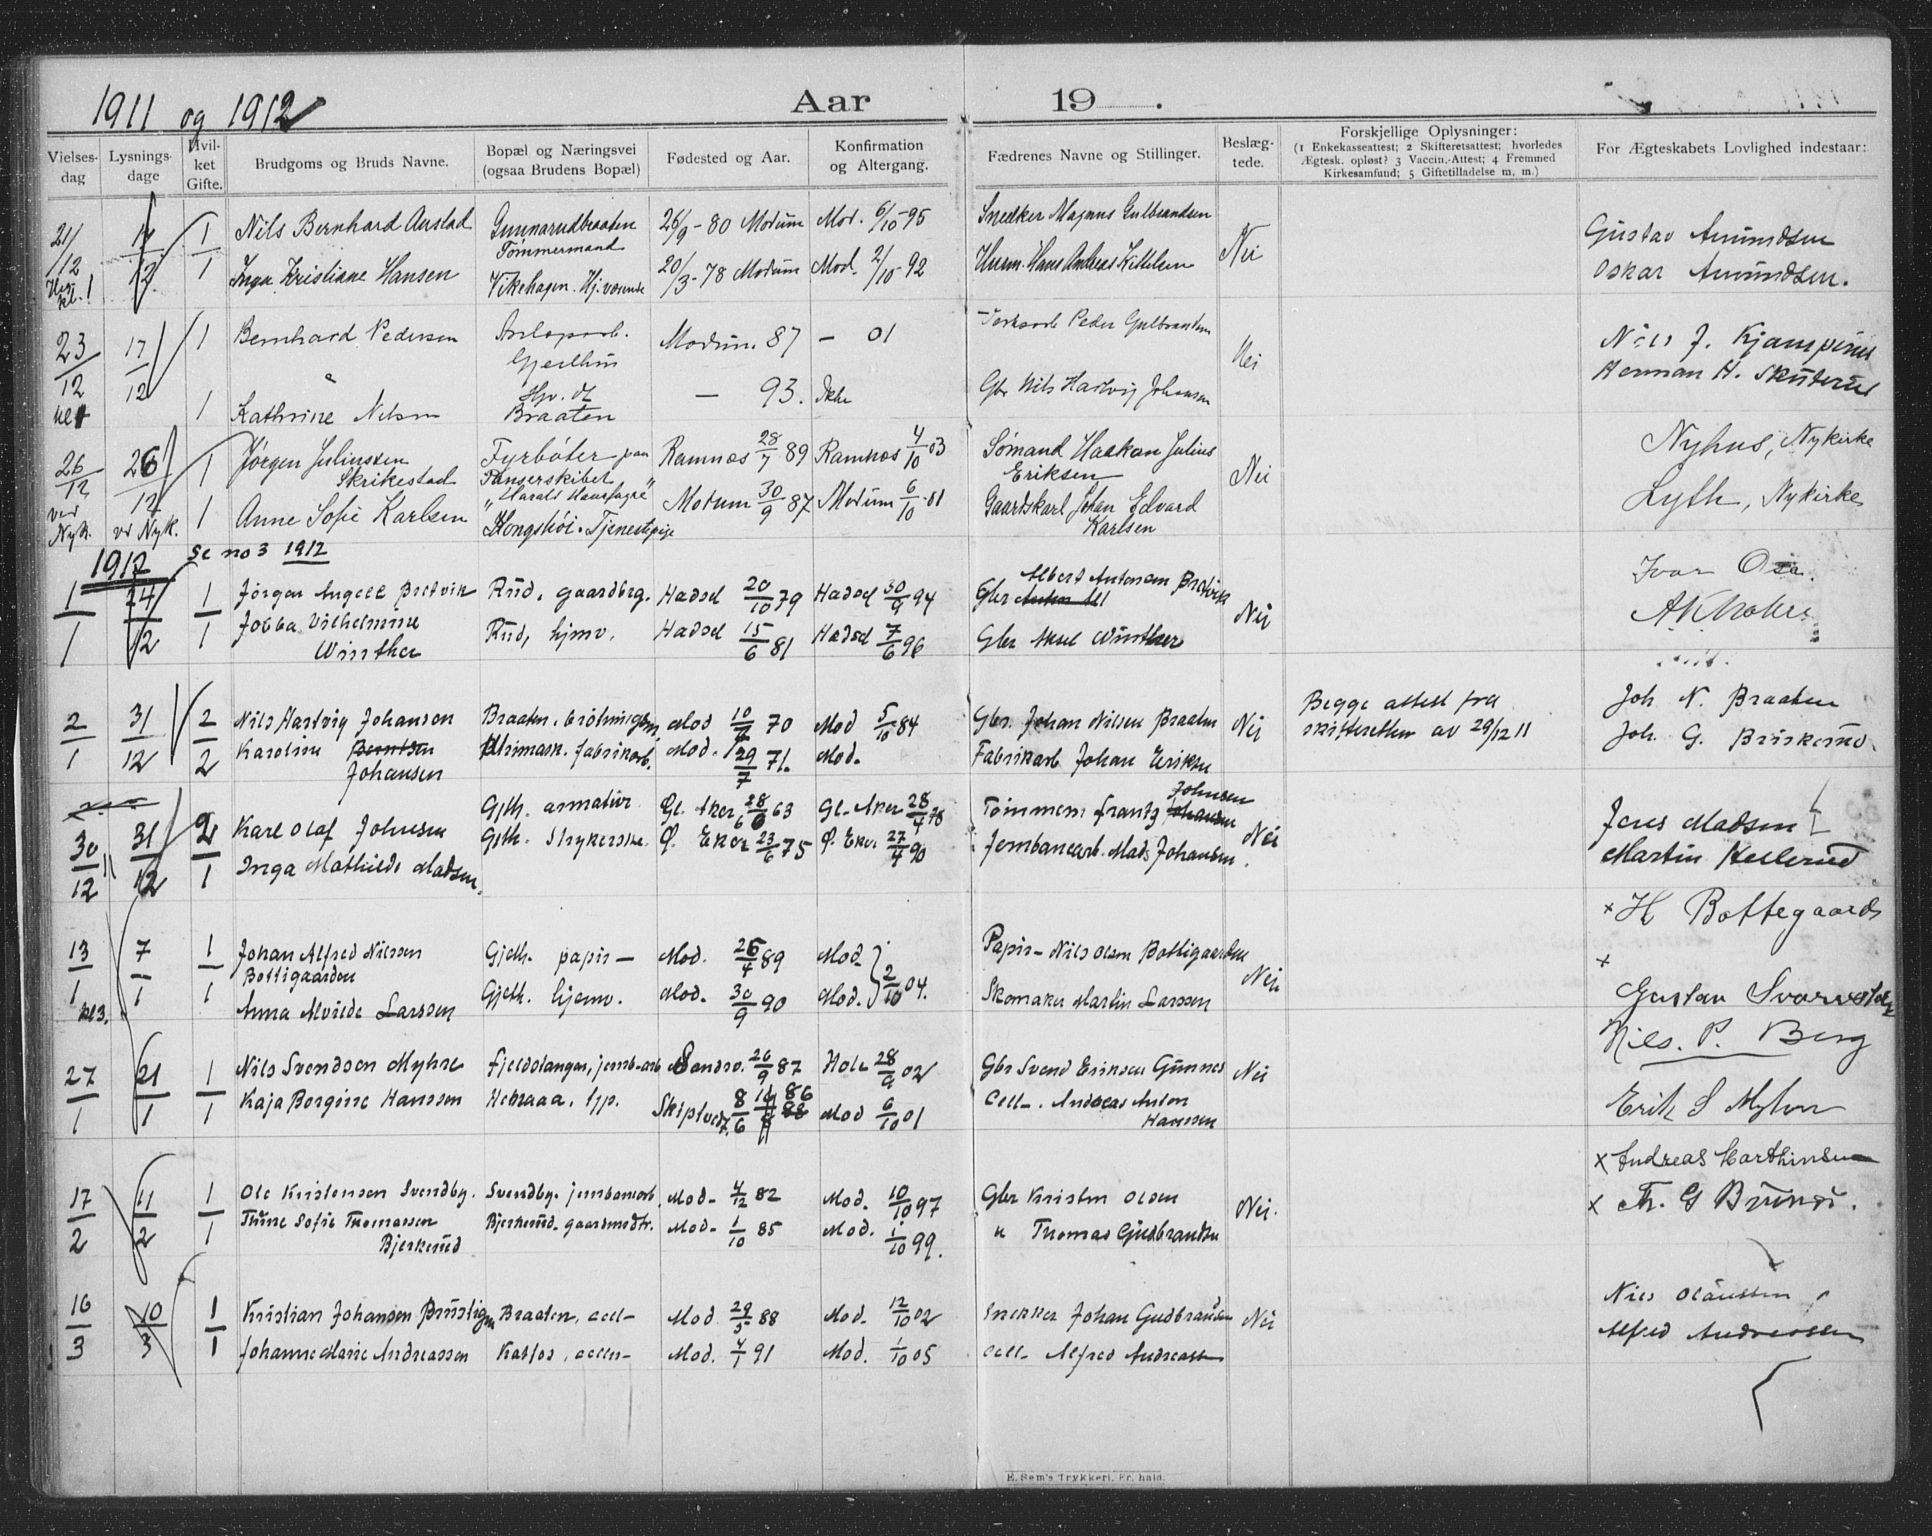 1911 og 1912
Aar 19 .
Vielses-dag
Lysnings-dage
Hvil-ket Gifte.
Brudgoms og Bruds Navne.
Bopæl og Næringsvei (ogsaa Brudens Bopæl)
Fødested og Aar.
Konfirmation og Altergang.
Fædrenes Navne og Stillinger.
Beslæg-tede.
Forskjellige Oplysninger:
(1 Enkekasseattest; 2 Skifteretsattest; hvorledes Ægtesk. opløst? 3 Vaccin.-Attest; 4 Fremmed Kirkesamfund; 5 Giftetilladelse m, m.)
For Ægteskabets Lovlighed indestaar:
21/12 1 Nils Bernhard Aastad Gunnarudbraaten Tømmermand 26/9 - 80 Modum Mod. 6/10-95 Snedker Magnus Gulbrandsen Nei Gustav Amundsen
1 Inga Kristiane Hansen Vikehagen. Hj.værende 20/3-78 Modum Mod. 2/10-92 Husm. Hans Andreas Kittelsen Oskar Amundsen.
23/12 17/12 1 Bernhard Pedersen Modum. 87 — 01 Peder Gulbrandsen Nei Nils J.
1 Kathrine Nilsen Braaten — 93. Ikke Gbr Nils Hartvig Johansen Herman H. Skuterud
26/12 ved Nyk. 26/12 ved Nyk. 1 Jørgen Juliussen Skrikestad Fyrbøter paa Panserskibet "Harald Haarfagre" Ramnæs 28/7 89 Ramnæs 4/10 03 Sømand Haakon Julius Eriksen Nei Nyhus, Nykirke
1 Anne Sofie Karlsen Kongshøi - Tjenestepige Modum 30/9 87 Modum 6/10-01 Gaardskarl Johan Edvard Karlsen Lyth, Nykirke
1912 Se no 3 1912
1/1 24/12 1 Jørgen Angell Bredvik Rud, gaardbr. Hadsel 20/10 79 Hadsel 30/9 94 Gbr Albert Antonsen Bredvik Nei Ivar
1 Jobba Vilhelmine Winther Rud, hjmv. Hadsel 15/6 81 Hadsel 7/6 96 Gbr Aksel Winther
2/1 31/12 2 Nils Hartvig Johansen Braaten, Mod 10/ 70 Mod 5/10 84 Gbr. Johan Nilsen Braaten Nei Begge attest fra skifteretten av 29/12 11 Joh N. Braaten
2 Karoline Berntsen Johansen fabrikarb. Mod. 29/7 71. Mod. Fabrikarb Johan Eriksen Joh. G. Briskerud
30/12 31/12 2 Karl Olaf Johnsen Gjth. armatur Gl. Aker 28/6 63 Gl. Aker 28/4 78 Tømmerm Frantz Johnsen Nei Jens Madsen
1 Inga Mathilde Madsen. Gjth. Strykerske Ø. Eker 23/6 75 Ø. Eker 27/4 90 Jernbanearb. Mads Johansen. Martin Kollerud
13/1 kl 3. 7/1 1 Johan Alfred Nilssen Bottigaarden Gjeth. papir— Mod. 26/4 89 Mod. 2/10 04. Papir— Nils Olsen Bottigaarden Nei × H Bottegaarden
1 Anna Alvilde Larssen Gjeth. hjemv. Mod. 30/9 90 Mod. Skomaker Martin Larssen × Gustav
27/1 21/1 1 Nils Svendsen Myhre Fjeldstangen, jernb-arb Sandsv. 26/9 87 Hole 28/9 02 Gbr Svend Eriksen Gunnes Nei Nils. P. Berg
1 Kaja Borgine Hanssen Skiptved 8/6 86 Mod 6/10 01 Cell-. Andreas Anton Hanssen Erik S Myhre
17/2 11/2 1 Ole Kristensen Svendby. Svendby. jernbanearb. Mod- 4/12 82 Mod. 10/10 97 Gbr Kristen Olsen Nei. × Andreas Marthinsen
1 Thine Sofie Thomassen Bjerkerud Bjerkerud- Mod- 1/10 85 Mod. 1/10 99. " Thomas Gudbrandsen ×
16/3 10/3 1 Kristian Johansen Braaten, cell- Mod 29/5 88 Mod. 12/10 02 Snekker Johan Gudbrandsen Nei Nils Olaussen
1 Johanne Marie Andreassen Katfos, Mod. 4/1 91 Mod. 1/10 05 cell- Alfred Andreassen Alfred Andreassen
E. Sem's Trykkeri, Fr. hald.